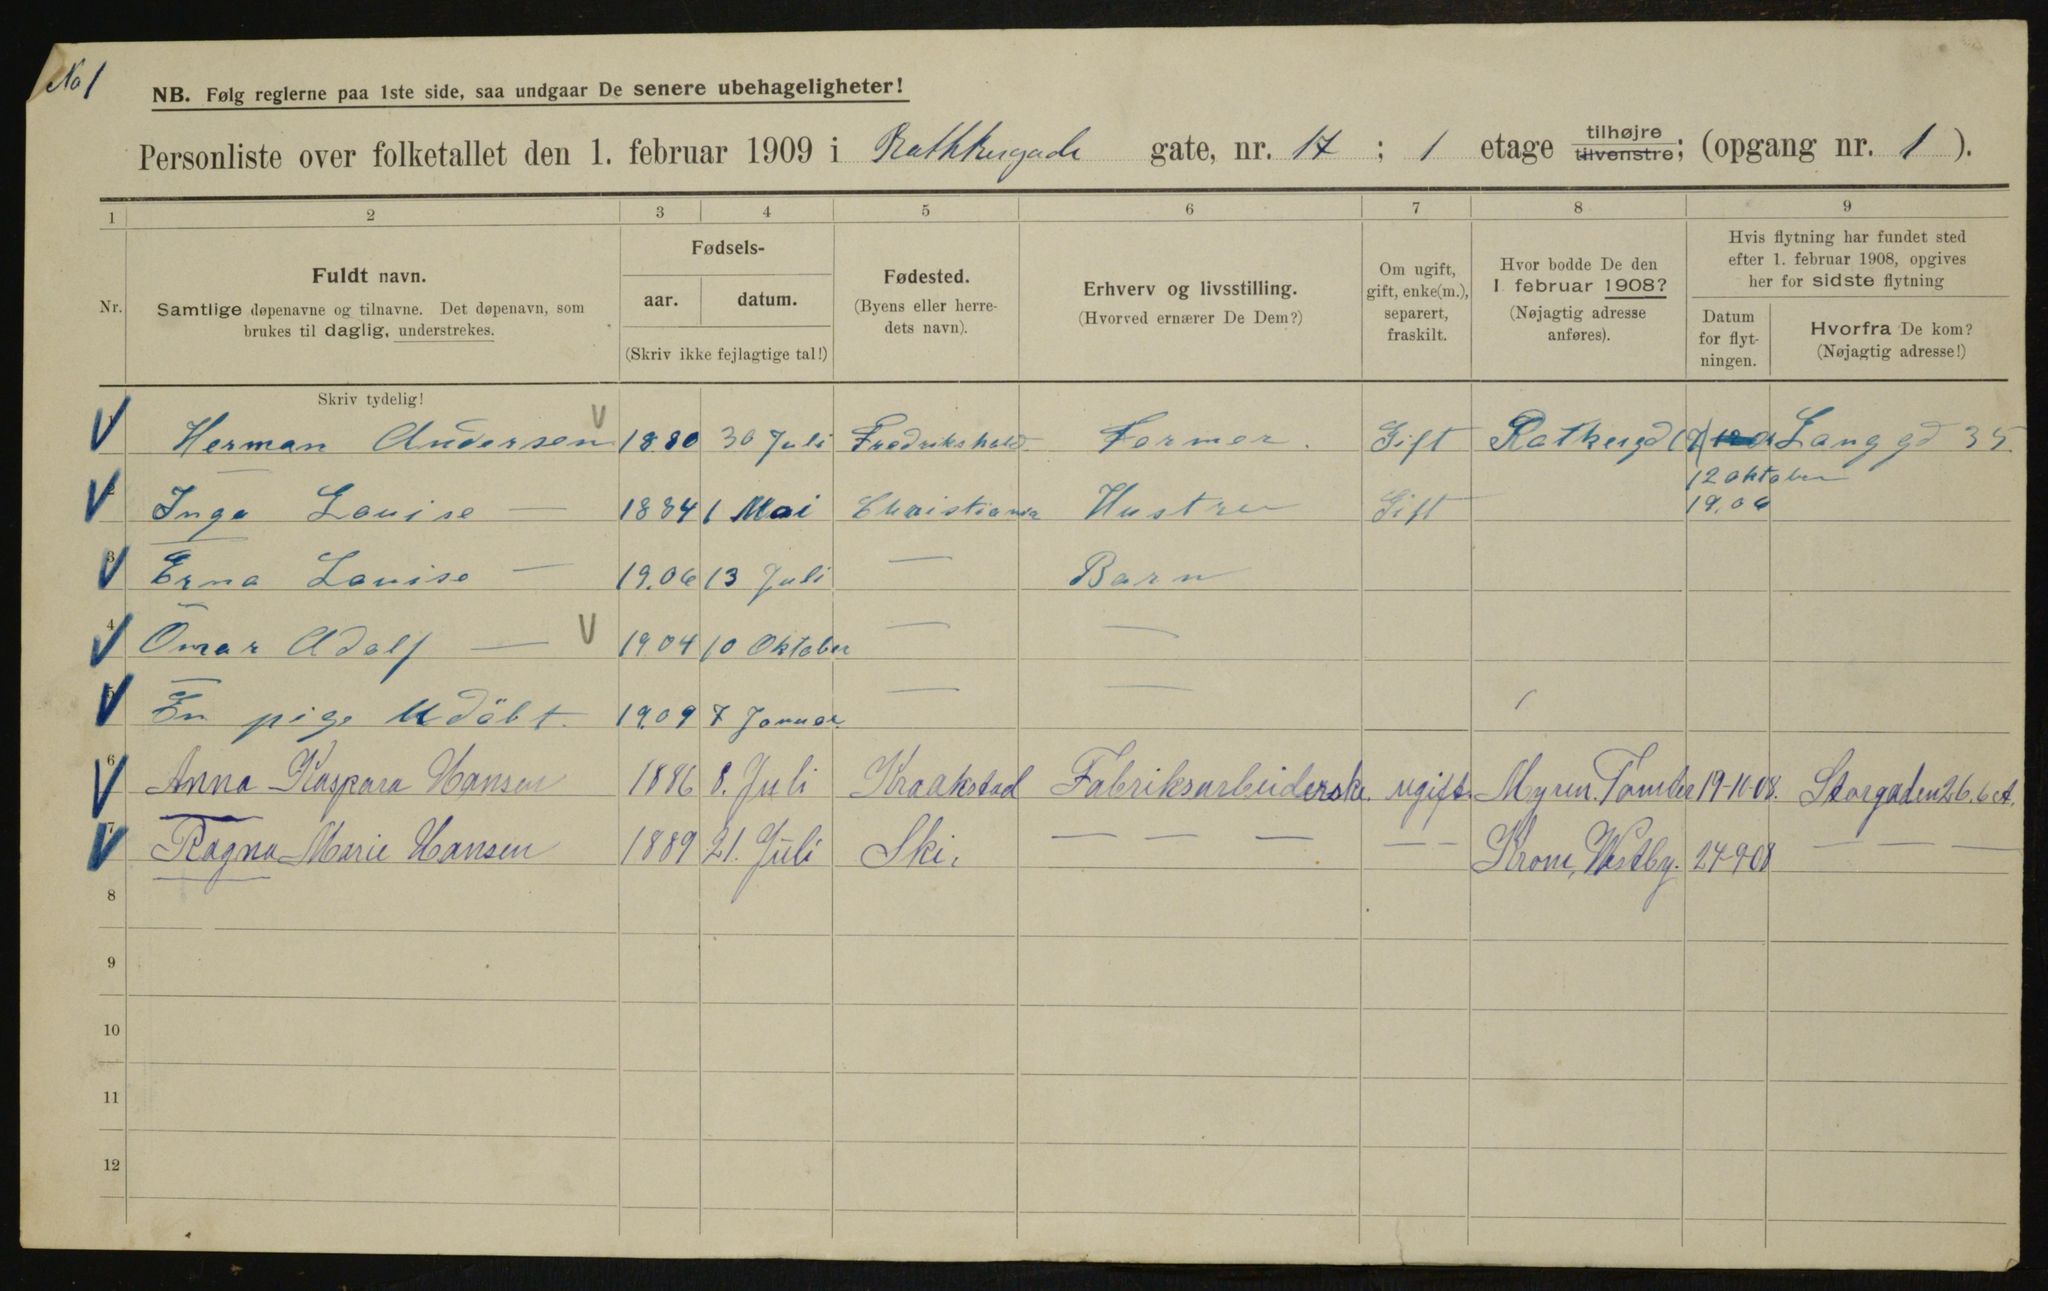 No 1
NB. Følg reglerne paa 1ste side, saa undgaar De senere ubehageligheter!
Personliste over folketallet den 1. februar 1909 i Rathkesgade gate, nr. 17 ; 1 etage tilhøjre tilvenstre; (opgang nr. 1 ).
1 2 3 4 5 6 7 8 9
Nr.
Fuldt navn.
Samtlige døpenavne og tilnavne. Det døpenavn, som
brukes til daglig, understrekes.
Fødsels-
aar. datum.
(Skriv ikke fejlagtige tal!)
Fødested.
(Byens eller herre-
dets navn).
Erhverv og livsstilling.
(Hvorved ernærer De Dem?)
Om ugift,
gift, enke(m.),
separert,
fraskilt.
Hvor bodde De den
1 februar 1908?
(Nøjagtig adresse
anføres).
Hvis flytning har fundet sted
efter 1. februar 1908, opgives
her for sidste flytning
Datum
for flyt-
ningen.
Hvorfra De kom?
(Nøjagtig adresse!)
Skriv tydelig!
1 Herman Andersen 1880 30 Juli Fredrikshald Former. Gift Ratkesgd 17 Langgd 35
12 oktober
2 Inga Louise — 1884 1 Mai Christiania Hustru Gift 19.06
3 Erna Lovise — 19.06 13 Juli — Barn
4 Omar Adolf — 19.04 10 Oktober — —
5 En pige Udöbt. 19.09 7 Januar. — —
6 Anna Kaspara Hansen 1886 8. Juli Kraakstad Fabriksarbeiderske. ugift. Myren. Tomter 19-10-08. Storgaden 26. 6 et.
7 Ragna Marie Hansen 1889 21. Juli Ski. — — — — — Krone, Vestby. 24-9-08 — — —
8
9
10
11
12